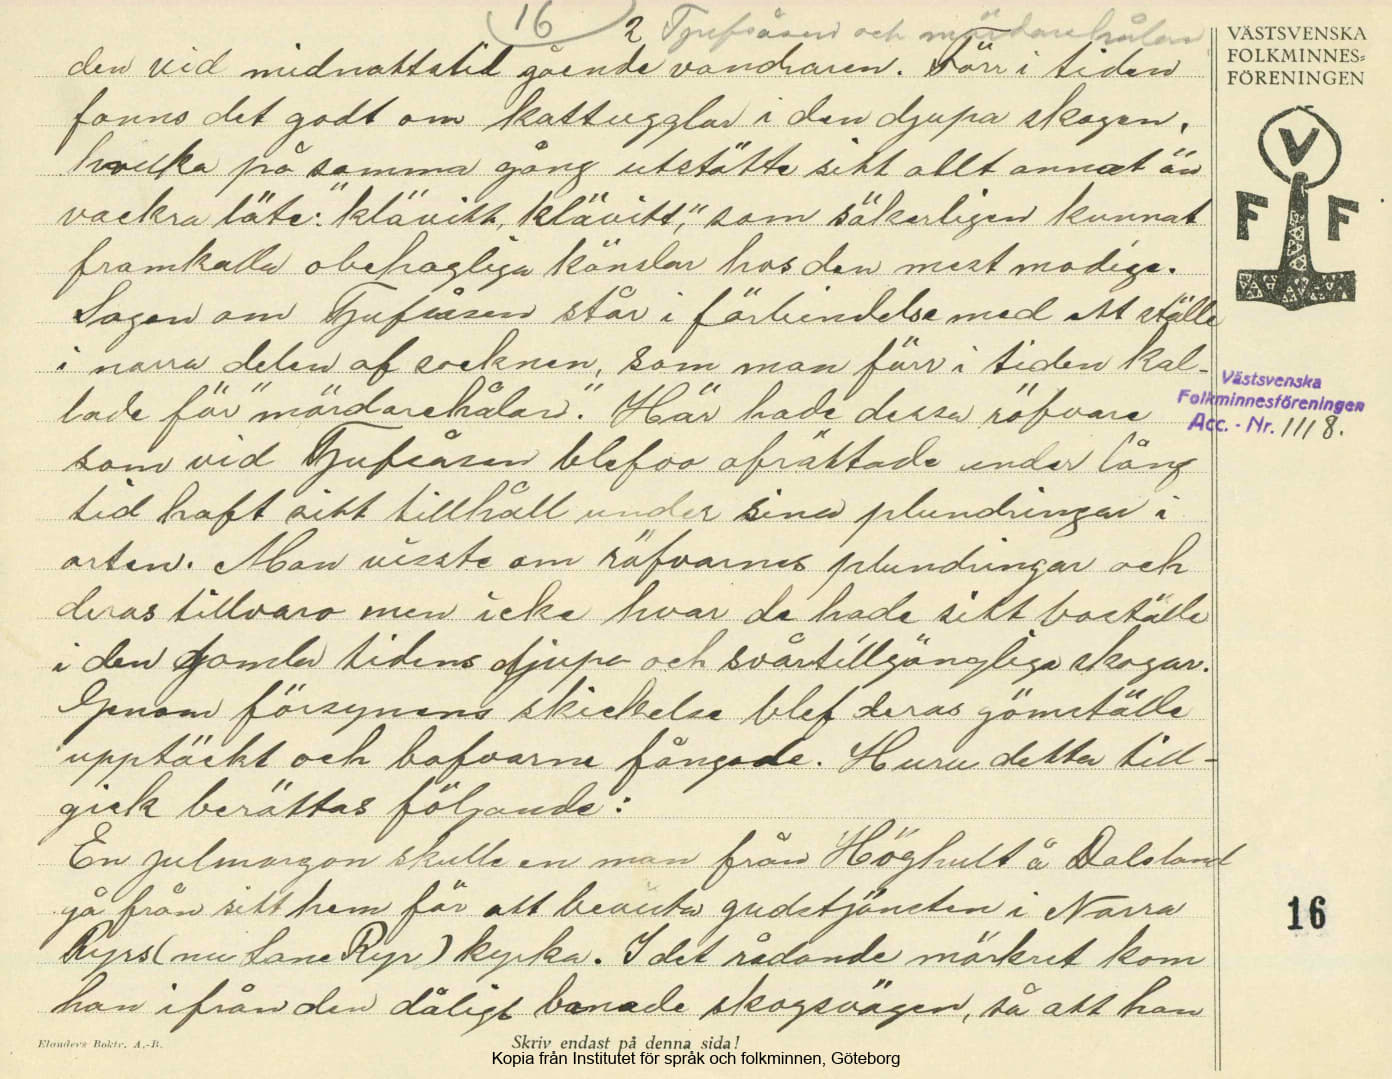 16
2 Tjufåsen och mördarehålan
VÄSTSVENSKA
FOLKMINNES-
FÖRENINGEN
V
F F
den vid midnattstid gående vandraren. Förr i tiden
fanns det godt om kattugglar i den djupa skogen,
hvilka på samma gång utstötte sitt allt annat än
vackra läte: "klävitt, klävitt," som säkerligen kunnat
framkalla obehagliga känslor hos den mest modige.
Sagan om Tjufåsen står i förbindelse med ett ställe
i norra delen af socknen, som man förr i tiden kal-
lade för "mördarehålan". Här hade dessa röfvare
som vid Tjufåsen blefvo afrättade under lång
tid haft sitt tillhåll under sina plundringar i
orten. Man visste om röfvarnes plundringar och
deras tillvaro men icke hvar de hade sitt boställe
i den gamla tidens djupa och svårtillgängliga skogar.
Genom försynens skickelse blef deras gömställe
upptäckt och bofvarne fångade. Huru detta till-
gick berättas följande:
En julmorgon skulle en man från Höghult å Dalsland
gå från sitt hem för att bevista gudstjänsten i Norra
Ryrs (nu Lane Ryr) kyrka. I det rådande mörkret kom
han ifrån den dåligt banade skogsvägen, så att han
Västsvenska
Folkminnesföreningen
Acc. - Nr. 1118.
16
Elanders Boktr. A.-B.
Skriv endast på denna sida!
Kopia från Institutet för språk och folkminnen, Göteborg